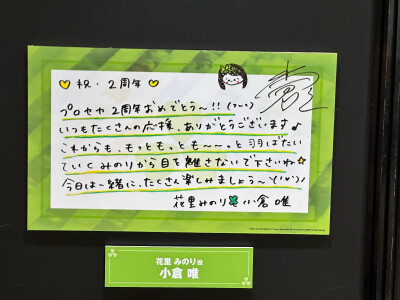 祝・2周年
プロセカ2周年おめでとう〜!!
いつもたくさんの応援、ありがとうございます♪
これからも、もっともっとも〜〜っと羽ばたい
ていくみのりから目を離さないで下さいね☆
今日は一緒に、たくさん楽しみましょう〜\('▽')/
花里みのり🍀小倉 唯
花里 みのり役
小倉 唯